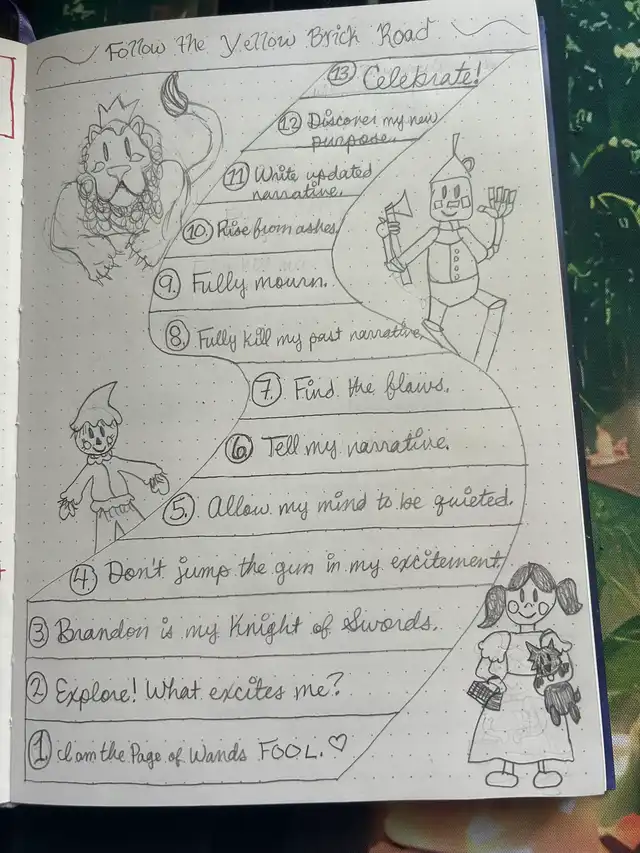 Follow the Yellow Brick Road
13 Celebrate!
12 Discover my new
purpose.
11 Write updated
narrative.
10. Rise from ashes.
9. Fully mourn.
8. Fully kill my past narrative.
7. Find the flaws.
6 Tell my narrative.
5. Allow my mind to be quieted.
4. Don't jump the gun in my excitement.
3 Brandon is my Knight of Swords.
2 Explore! What excites me?
1 I am the Page of Wands FOOL. ♡